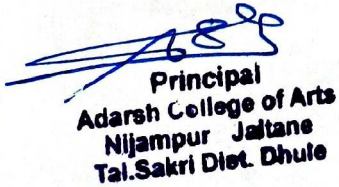 Principal
Adarsh College of Arts
Nijampur Jaitane
Tal.Sakri Dist. Dhule